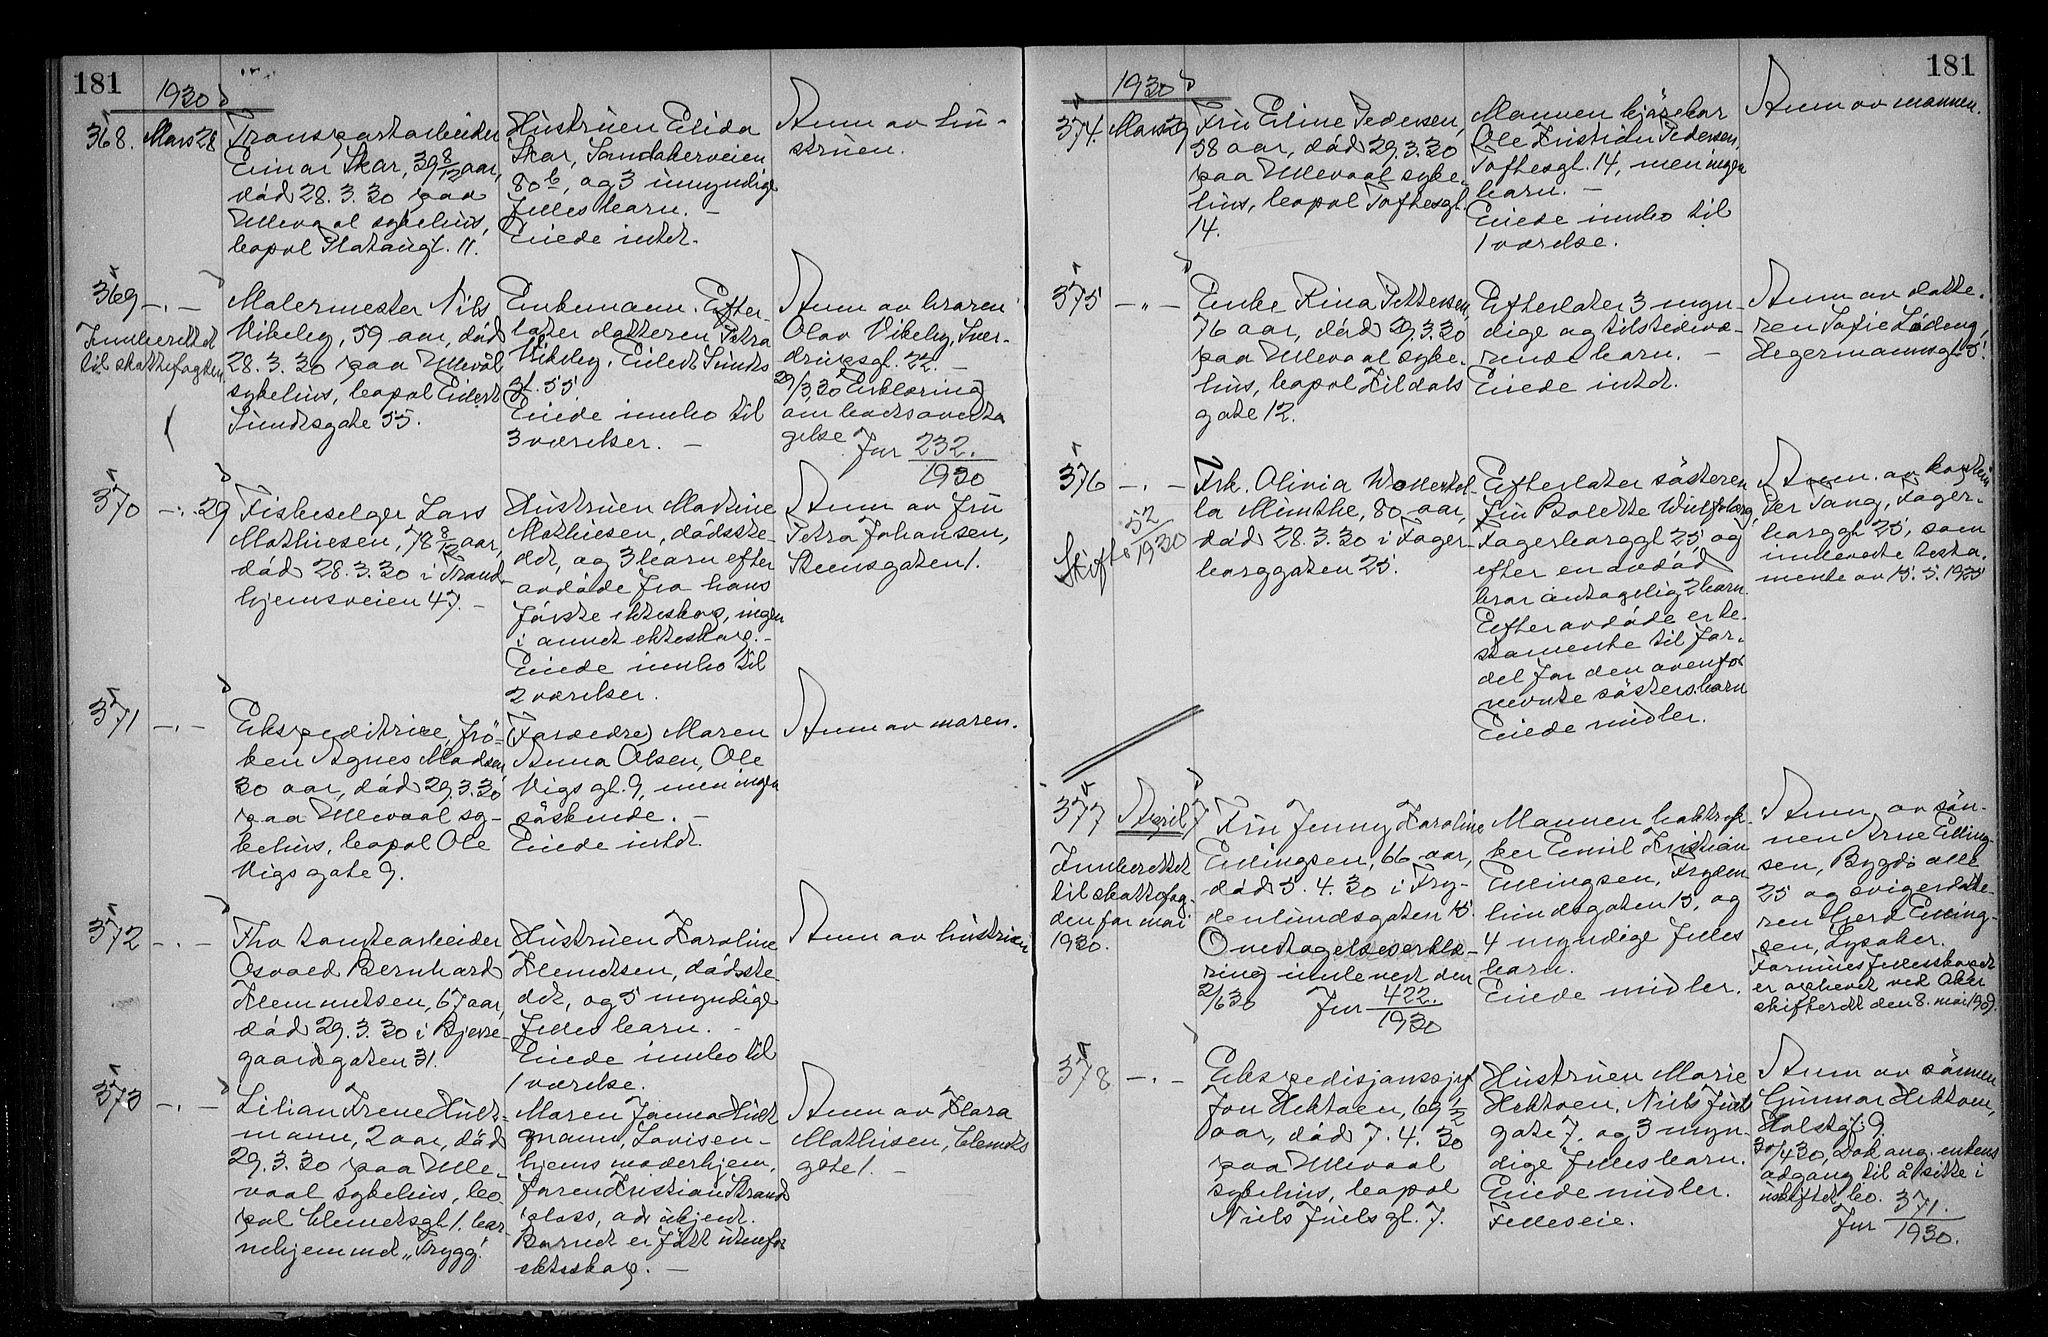 181
1930
368. Mars 28
Transportarbeider
Einar Skar, 39 8/12 aar,
död 28.3.30 paa
Ullevaal sykehus,
bopæl Platougt. 11.
Hustruen Elida
Skar, Sandakerveien
80 b, og 3 umyndige
felles barn. –
Eiede intet.
Anm av hu-
struen.
369 –"–
Innberettet
til skattefogden
Malermester Nils
Vikeby, 59 aar, död
28.3.30 paa Ullevål
sykehus, bopæl Eilert
Sundtsgate 55.
Enkemann. Efter-
later datteren Petra
Vikeby, Eilert Sundts
gt. 55.
Eiede innbo til
3 værelser. –
Anm av broren
Olav Vikeby, Sver-
drupsgt. 32. –
29/3.30 Erklæring
om boets overta
gelse
Jur 232./1930
370 –"– 29
Fiskeselger Lars
Mathiesen, 78 8/12 aar,
död 28.3.30 i Trond-
hjemsveien 47. –
Hustruen Martine
Mathiesen, dödsste-
det, og 3 barn efter
avdöde fra hans
förste ekteskap, ingen
i annet ekteskap. –
Eiede innbo til
2 værelser.
Anm av fru
Petra Johansen,
Steensgaten 1.
371 –"–
Ekspeditrice, frö-
ken Agnes Madsen
30 aar, död 29.3.30
paa Ullevaal sy-
kehus, bopæl Ole
Vigs gate 9.
(Foreldre) Moren
Anna Olsen, Ole
Vigs gt. 9, men ingen
söskende. –
Eiede intet.
Anm av moren.
372 –"–
Fhv tomtearbeider
Osvald Bernhard
Klemmetsen, 67 aar,
död 29.3.30 i Bjerre-
gaardgaten 31.
Hustruen Karoline
Klemetsen, dödsste-
det, og 5 myndige
felles barn. –
Eiede innbo til
1 værelse.
Anm av hustruen
373 –"–
Lilian Irene Hult-
mann, 2 aar, död
29.3.30 paa Ulle-
vaal sykehus, bo
pæl Clemetsgt 1. bar
nehjemmet "Trygg".
Moren Janna Hult
mann, Lovisen-
hjems moderhjem,
faren Kristian Strand
ploss, adr ukjent.
Barnet er född utenfor
ekteskap. –
Anm av Klara
Mathisen, Clemets
gate 1. –
181
1930
374. Mars 29
Fru Eline Pedersen,
58 aar, död 29.3.30
paa Ullevaal syke-
hus, bopæl Toftesgt.
14.
Mannen kjörekar
Ole Kristian Pedersen,
Toftesgt. 14, men ingen
barn. –
Eiede innbo til
1 værelse.
Anm av mannen.
375 –"–
Enke Rina Pettersen
76 aar, död 29.3.30
paa Ullevaal syke-
hus, bopæl Kildals
gate 12.
Efterlater 3 myn-
dige og tilstedevæ-
rende barn. –
Eiede intet.
Anm av datte-
ren Sofie Lödeng,
Hegermannsgt. 5.
376 –"–
Skifte 52/1930
Frk. Olivia Wollertol-
la Munthe, 80 aar,
död 28.3.30 i Fager-
borggaten 25.
Efterlater sösteren
Fru Bolette Wulfsberg,
Fagerborggt 25, og
efter en avdöd
bror antagelig 2 barn.
Efter avdöde er te-
stamente til for-
del for den ovenfor
nevnte sösters barn
Eiede midler.
Anm. av kaptein
Per Tang, Fager-
borggt. 25, som
innleverte testa-
mente av 15.5.1925
377 April 7
Innberettet
til skattefog-
den for mai
1930.
Fru Jenny Karoline
Ellingsen, 66 aar,
död 5.4.30 i Fry-
denlundsgaten 15.
Overtagelseserklæ-
ring innlevert den
2/6 30 Jur 422./1930
Mannen boktryk-
ker Emil Kristian
Ellingsen, Fryden
lundsgaten 15, og
4 myndige felles
barn.
Eiede midler.
Anm av sön-
nen Arne Elling-
sen, Bygdö alle
25 og svigerdatte-
ren Gerd Elling-
sen, Lysaker.
Formuesfellesskapet
er ophevet ved Aker
skifterett den 8. mai 1909.
378 –"–
Ekspedisjonssjef
Jon Hektoen, 69 1/2
aar, död 7.4.30
paa Ullevaal
sykehus, bopæl
Niels Juels gt. 7.
Hustruen Marie
Hektoen, Niels Juels
gate 7, og 3 myn-
dige felles barn.
Eiede midler.
Felleseie.
Anm av sönnen
Gunnar Hektoen,
Holstgt. 9
30/4 30, Dok ang. enkens
adgang til å sitte i
uskiftet bo.
Jur 371./1930.